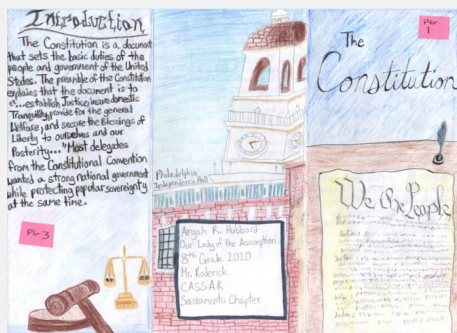 Introduction
The Constitution is a document
that sets the basic duties of the
people and government of the United
States. The preamble of the Constitution
explains that the document is to
"...establish Justice, insure domestic
Tranquility, provide for the general
Welfare, and secure the Blessings of
Liberty to ourselves and our
Posterity...." Most delegates
from the Constitutional Convention
wanted a strong national government
while protecting popular sovereignty
at the same time.
Pg. 3
Philadelphia
Independence Hall
Aryah R. Hubbard
Our Lady of the Assumption
8th Grade 2020
Mr. Roderick
CASSAR
Sacramento Chapter
Pg. 1
The
Constitution
We the People